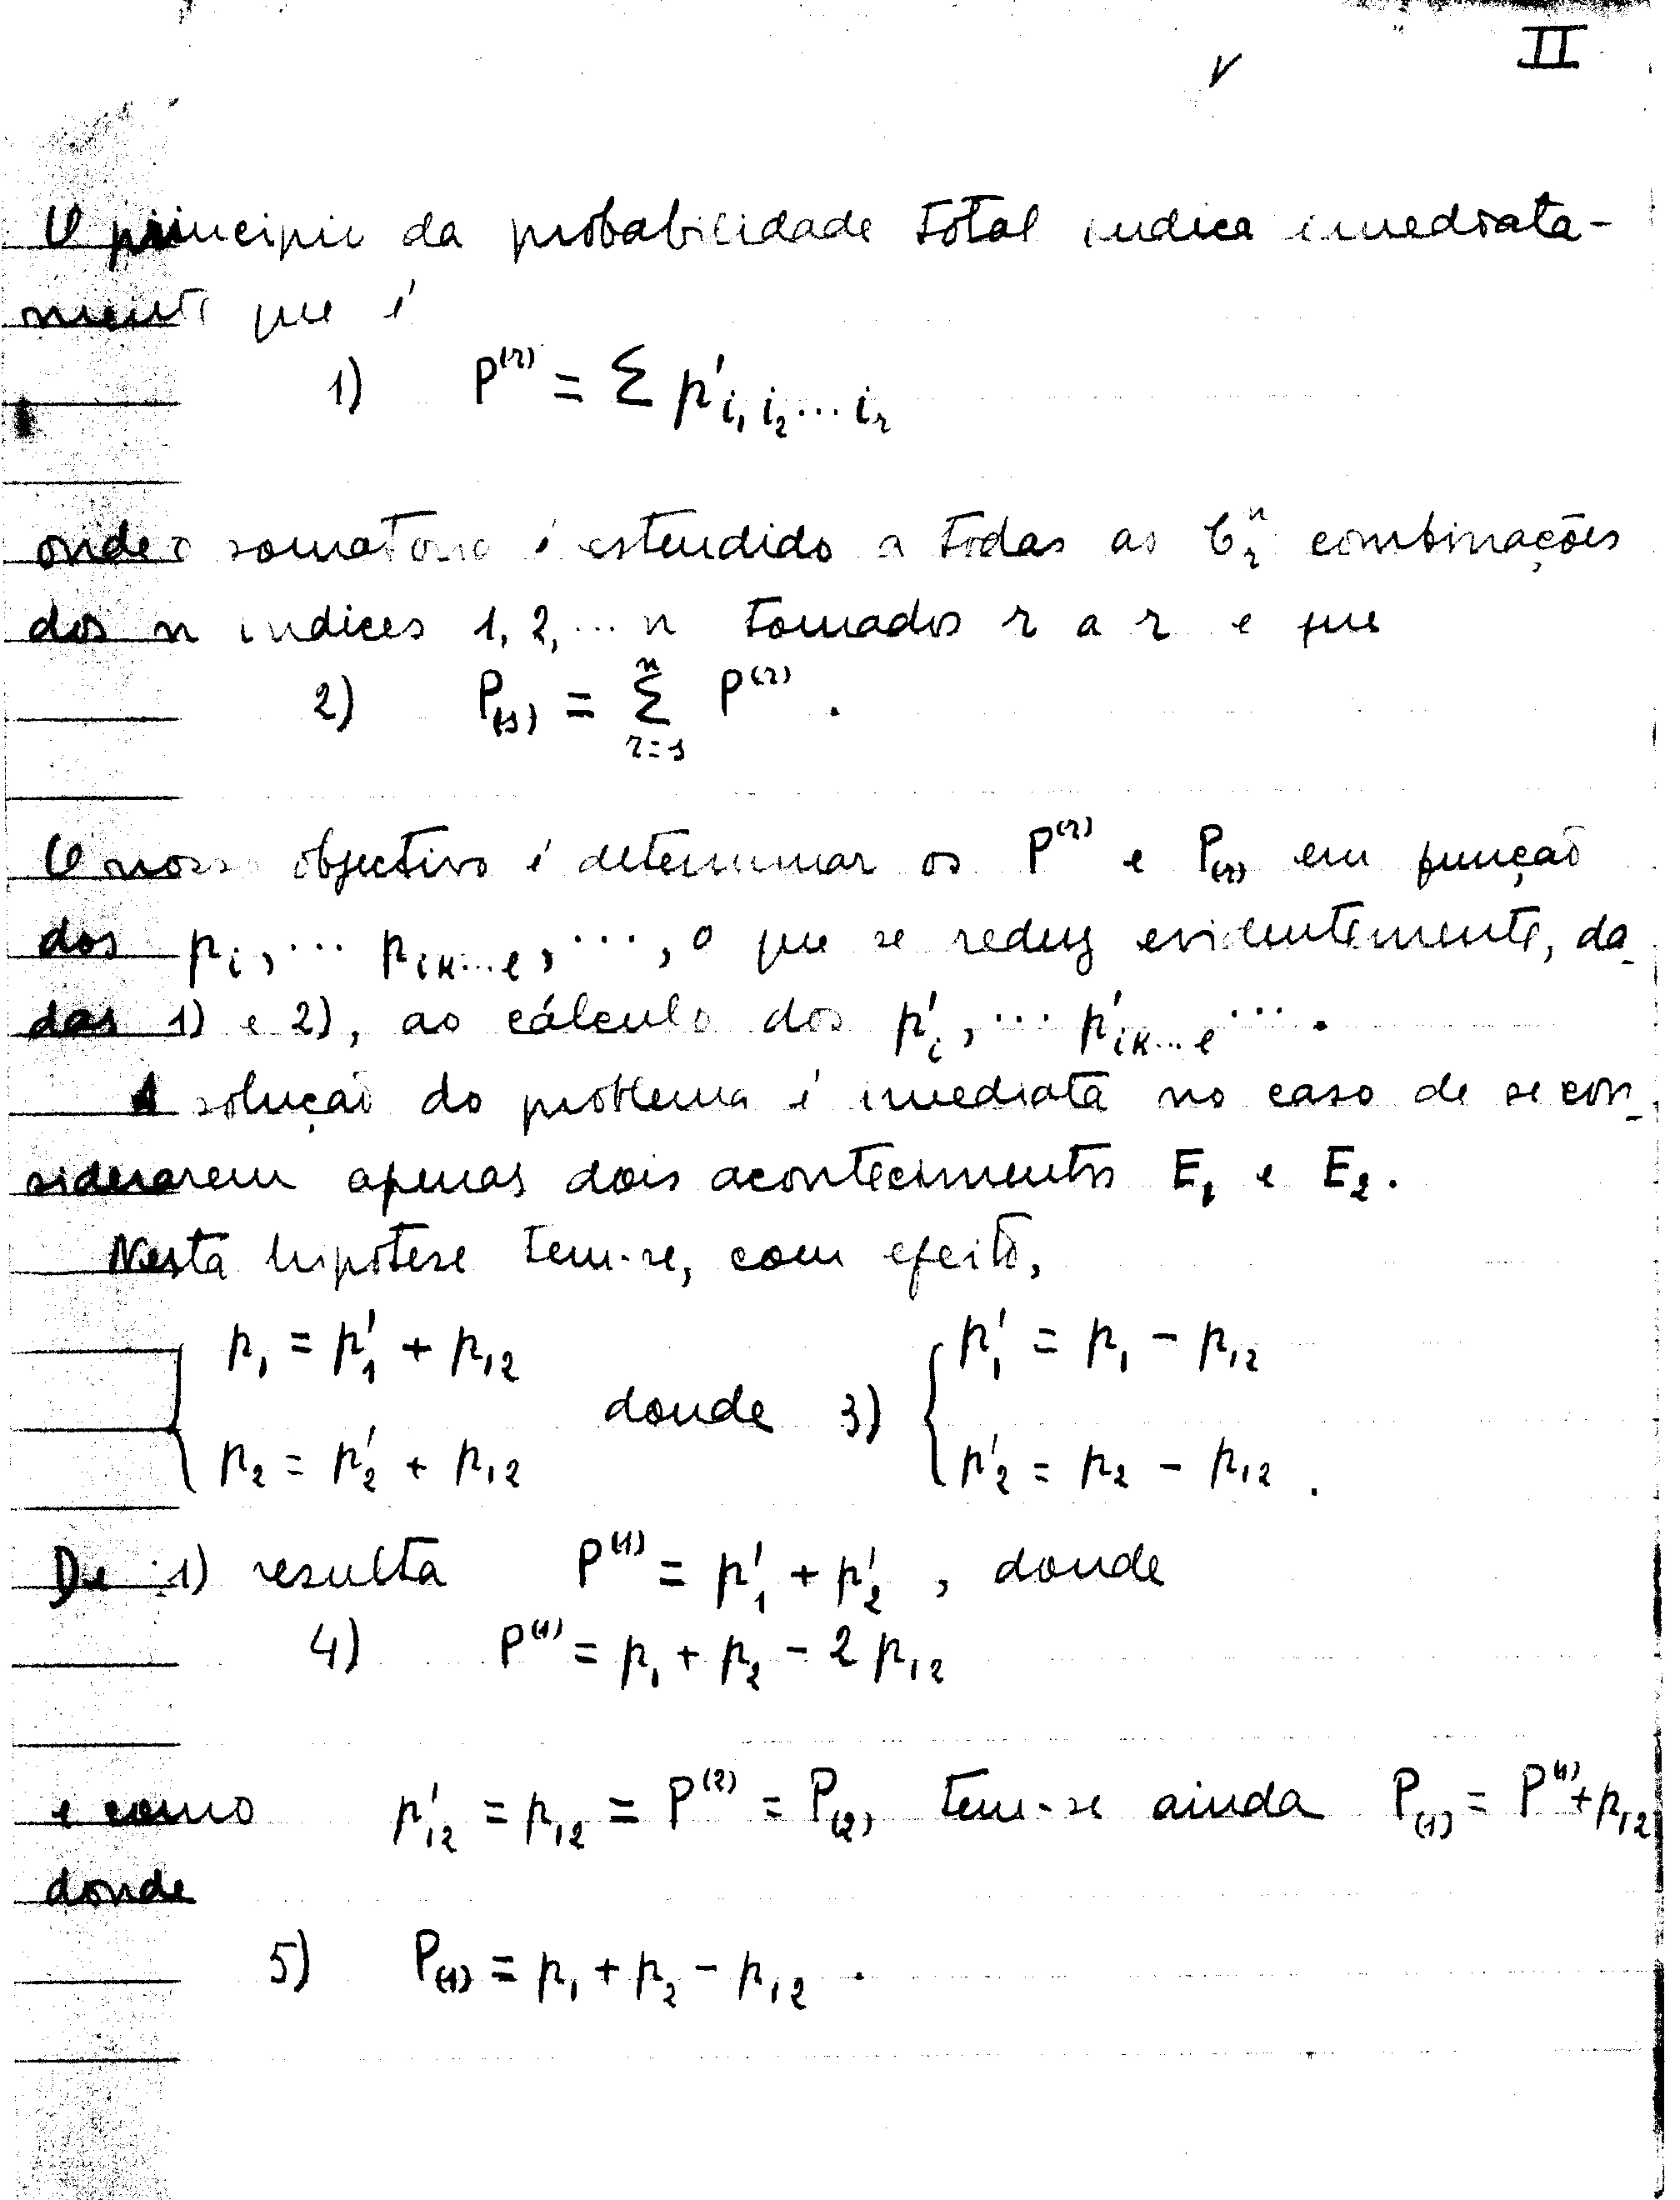 II
O principio da probabilidade total indica imediata-
mente que é
1) P⁽ʳ⁾ = Σ p'i₁ i₂ ... iᵣ
onde o somatorio é estendido a todas as Cⁿᵣ combinações
dos n indices 1, 2, ... n tomados r a r e que
2) P₍ₛ₎ = Σⁿᵣ₌ₛ P⁽ʳ⁾.
O nosso objectivo é determinar os P⁽ʳ⁾ e P₍ᵣ₎ em função
dos pᵢ, ... pᵢₖ...ₗ, ..., o que se reduz evidentemente, da-
das 1) e 2), ao cálculo dos p'ᵢ, ... p'ᵢₖ...ₗ ... .
A solução do problema é imediata no caso de se con-
siderarem apenas dois acontecimentos E₁ e E₂.
Nesta hipótese tem-se, com efeito,
{ p₁ = p'₁ + p₁₂
p₂ = p'₂ + p₁₂ donde 3) { p'₁ = p₁ - p₁₂
p'₂ = p₂ - p₁₂ .
De 1) resulta P⁽¹⁾ = p'₁ + p'₂ , donde
4) P⁽¹⁾ = p₁ + p₂ - 2 p₁₂
e como p'₁₂ = p₁₂ = P⁽²⁾ = P₍₂₎ tem-se ainda P₍₁₎ = P⁽¹⁾ + p₁₂
donde
5) P₍₁₎ = p₁ + p₂ - p₁₂ .